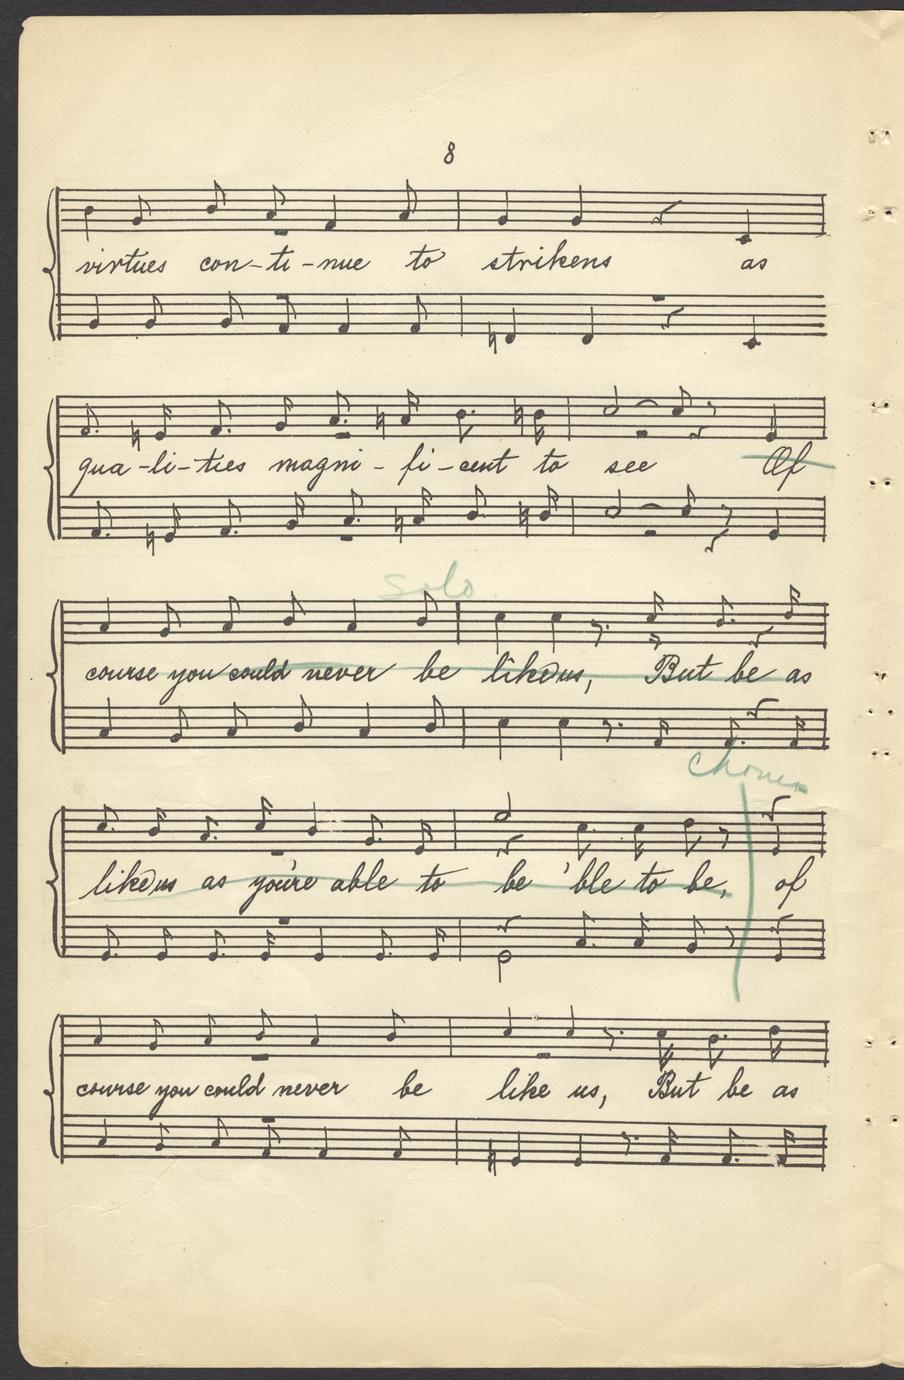 8
virtues con-ti-nue to strikens as
qua-li-ties magni-fi-cent to see Of
Solo
course you could never be like us, But be as
Chorus
like us as you're able to be 'ble to be, of
course you could never be like us, But be as